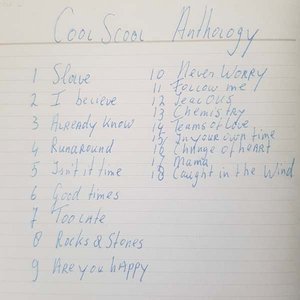 Cool Scool Anthology
1 Slave
2 I believe
3 Already know
4 Runaround
5 Isn't it time
6 Good times
7 Too late
8 Rocks & Stones
9 Are you happy
10 Never Worry
11 Follow me
12 Jealous
13 Chemistry
14 Tears of love
15 In your own time
16 Change of heart
17 Mama
18 Caught in the Wind